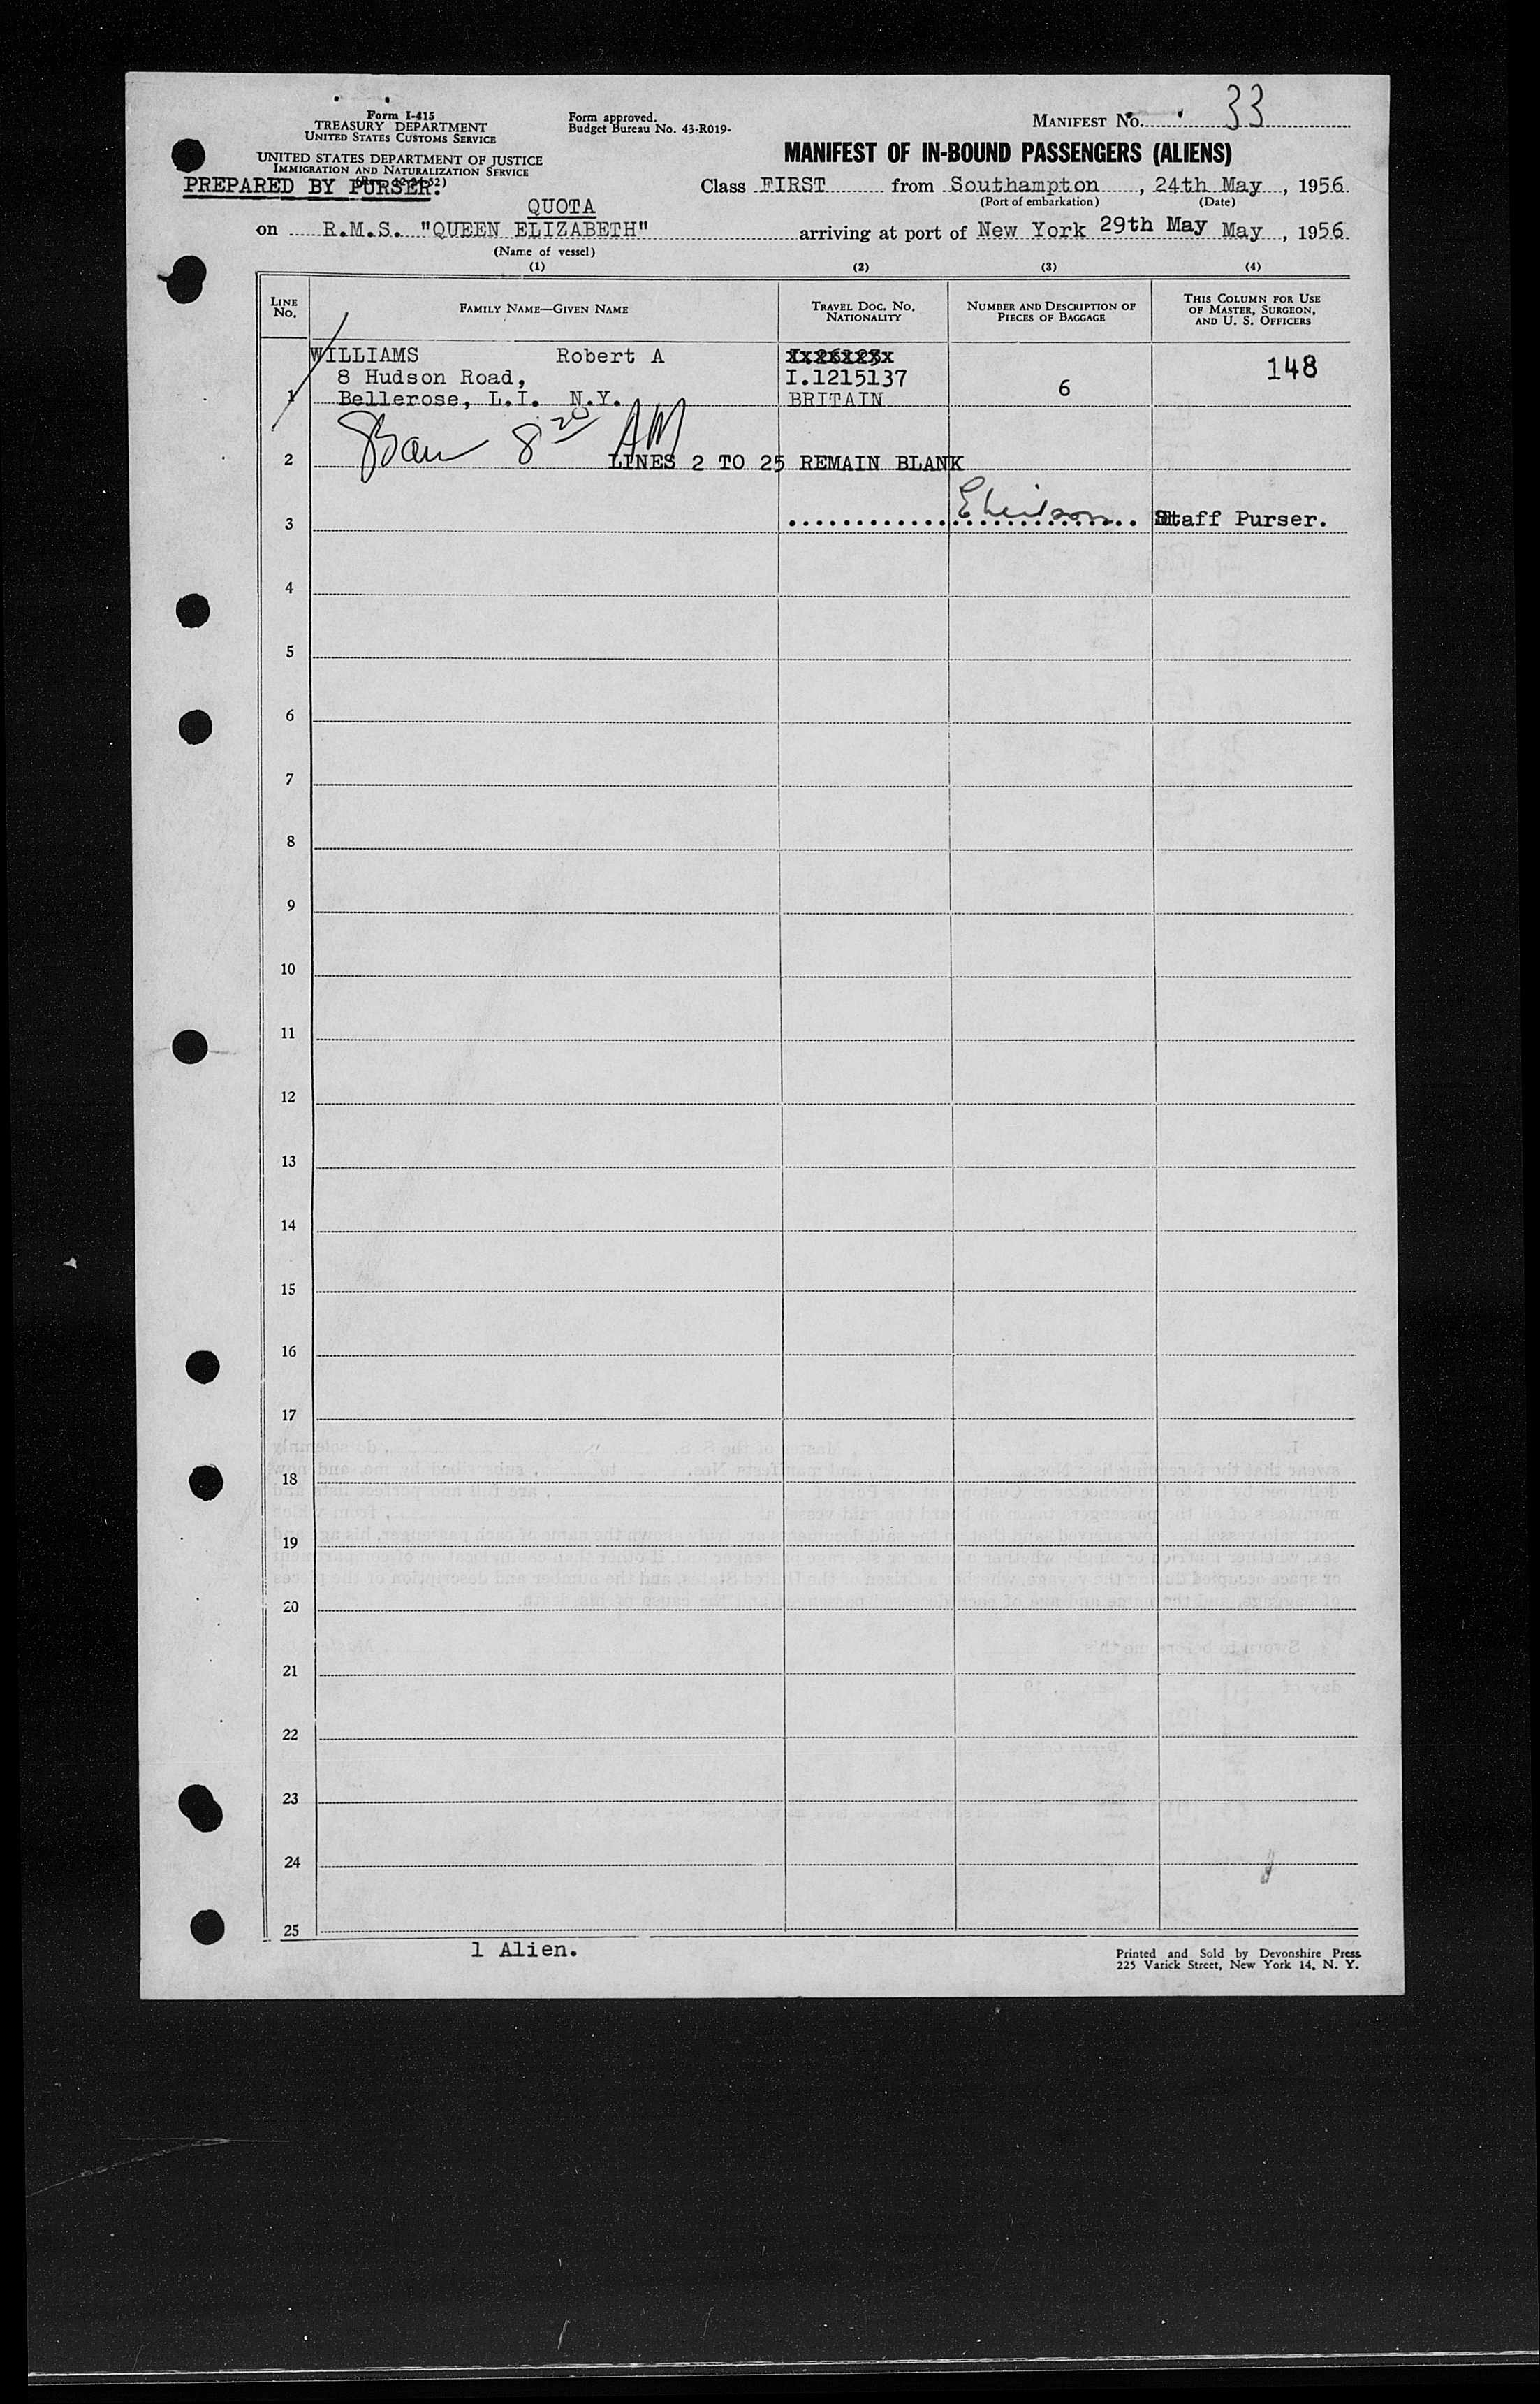 Form I-415
TREASURY DEPARTMENT
UNITED STATES CUSTOMS SERVICE
UNITED STATES DEPARTMENT OF JUSTICE
IMMIGRATION AND NATURALIZATION SERVICE
PREPARED BY PURSER.
Form approved.
Budget Bureau No. 43-R019-
MANIFEST No. 33
MANIFEST OF IN-BOUND PASSENGERS (ALIENS)
Class FIRST from Southampton, 24th May, 1956.
(Port of embarkation) (Date)
QUOTA
on R.M.S. "QUEEN ELIZABETH" arriving at port of New York 29th May May, 1956.
(Name of vessel)
(1) (2) (3) (4)
LINE No. FAMILY NAME—GIVEN NAME TRAVEL DOC. NO. NATIONALITY NUMBER AND DESCRIPTION OF PIECES OF BAGGAGE THIS COLUMN FOR USE OF MASTER, SURGEON, AND U. S. OFFICERS
WILLIAMS Robert A
8 Hudson Road, I.1215137 148
1 Bellerose, L.I. N.Y. BRITAIN 6
8 20 AM
2 LINES 2 TO 25 REMAIN BLANK
3 Staff Purser.
4
5
6
7
8
9
10
11
12
13
14
15
16
17
18
19
20
21
22
23
24
25
1 Alien.
Printed and Sold by Devonshire Press
225 Varick Street, New York 14, N. Y.